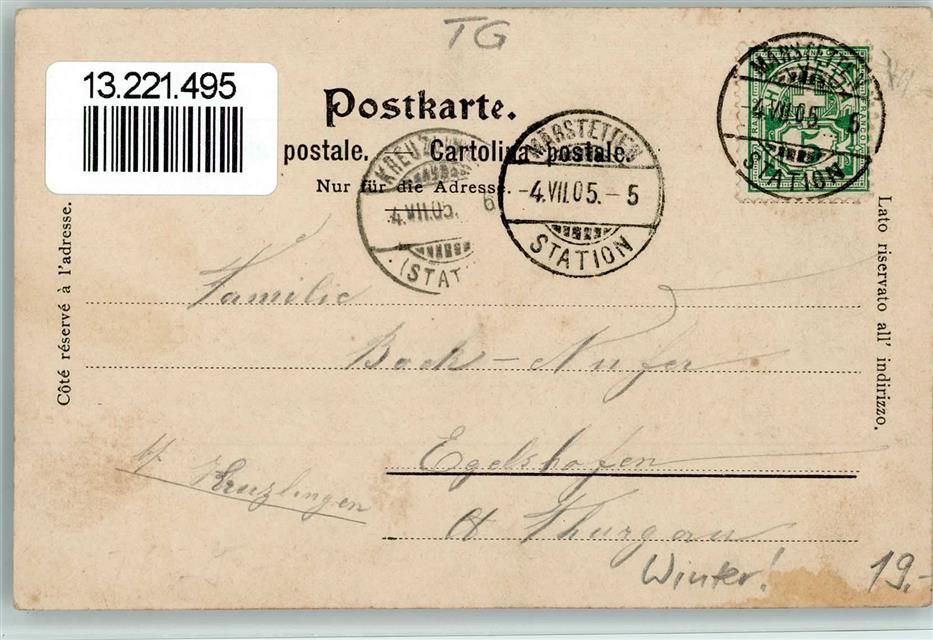 TG
13.221.495
Postkarte.
postale. Cartolina postale.
Nur für die Adresse.
KREUZL
4.VII.05. 6
(STAT
MÄRSTETTEN
-4.VII.05.-5
STATION
MÄRSTETTEN
-4.VII.05. 5
STATION
Côté réservé à l'adresse.
Lato riservato all' indirizzo.
Familie
Bock-Nufer
Egelshofen
b/ Kreuzlingen
Ct Thurgau
Winter!
19.-